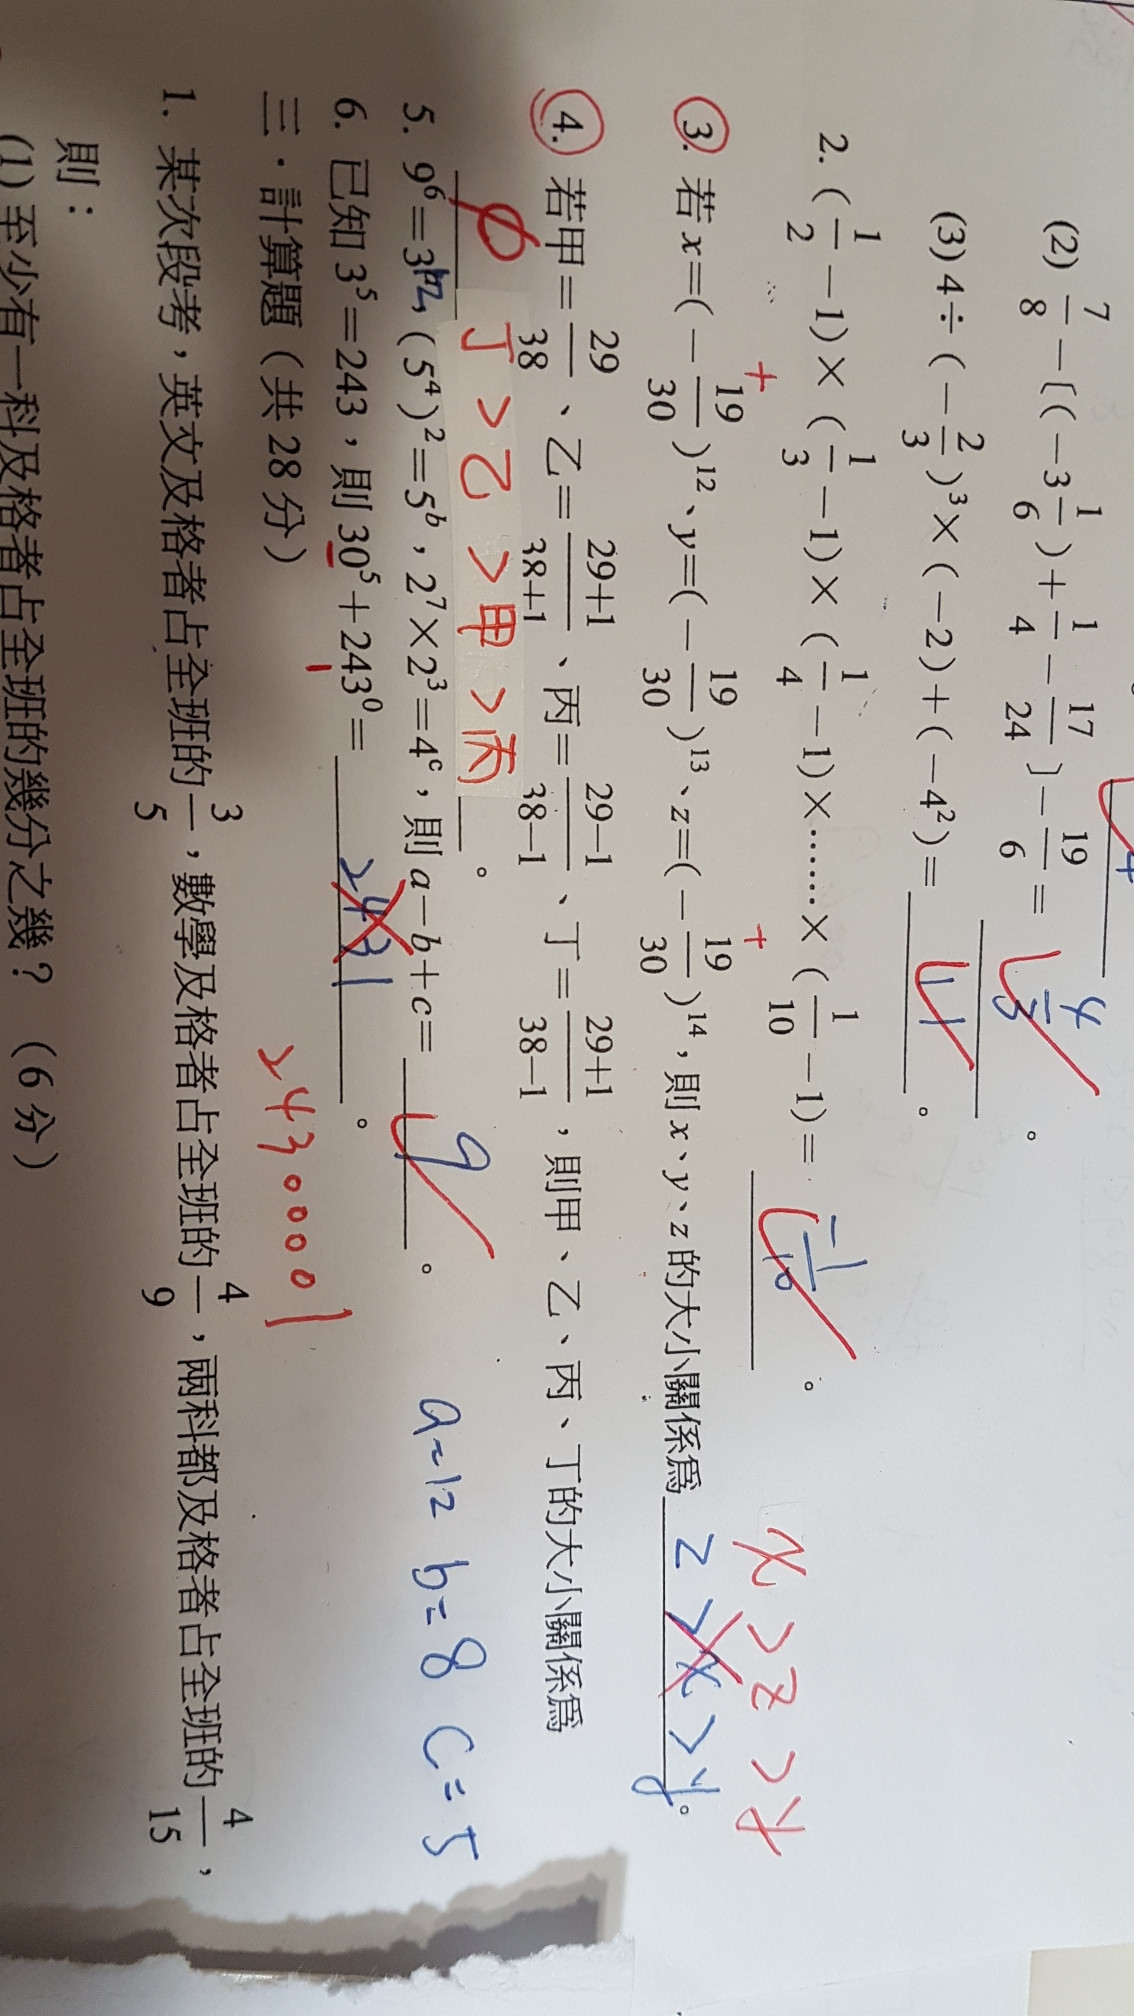 (2) 7/8 − [(−3 1/6) + 1/4 − 17/24] − 19/6 = 4/3 。
(3) 4 ÷ (−2/3)³ × (−2) + (−4²) = 11 。
2. (1/2 − 1) × (1/3 − 1) × (1/4 − 1) × …… × (1/10 − 1) = −1/10 。
x > z > y
+ +
③. 若 x = (−19/30)¹²、y = (−19/30)¹³、z = (−19/30)¹⁴，則 x、y、z 的大小關係為 z > x > y 。
④. 若甲 = 29/38、乙 = 29+1/38+1、丙 = 29−1/38−1、丁 = 29+1/38−1，則甲、乙、丙、丁的大小關係為
丁 > 乙 > 甲 > 丙 。
5. 9⁶ = 3¹²，(5⁴)² = 5ᵇ，2⁷ × 2³ = 4ᶜ，則 a − b + c = 9 。
a = 12 b = 8 c = 5
6. 已知 3⁵ = 243，則 30⁵ + 243⁰ = 2431 。
24300001
三．計算題（共 28 分）
1. 某次段考，英文及格者占全班的 3/5，數學及格者占全班的 4/9，兩科都及格者占全班的 4/15，
則：
(1) 至少有一科及格者占全班的幾分之幾？（6 分）